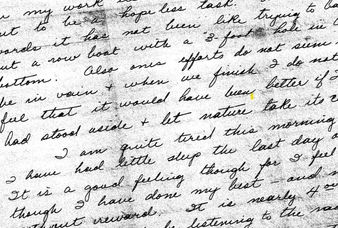 my work
out to be a hopeless task.
words it has not been like trying to ba
out a row boat with a 3 foot hole in
bottom. Also ones efforts do not seem
be in vain & when we finish I do not
feel that it would have been better if I
had stood aside & let nature take its
I am quite tired this morning
I have had little sleep the last day o
It is a good feeling though for I feel
though I have done my best - and n
without reward. It is nearly 4 o
be listening to the